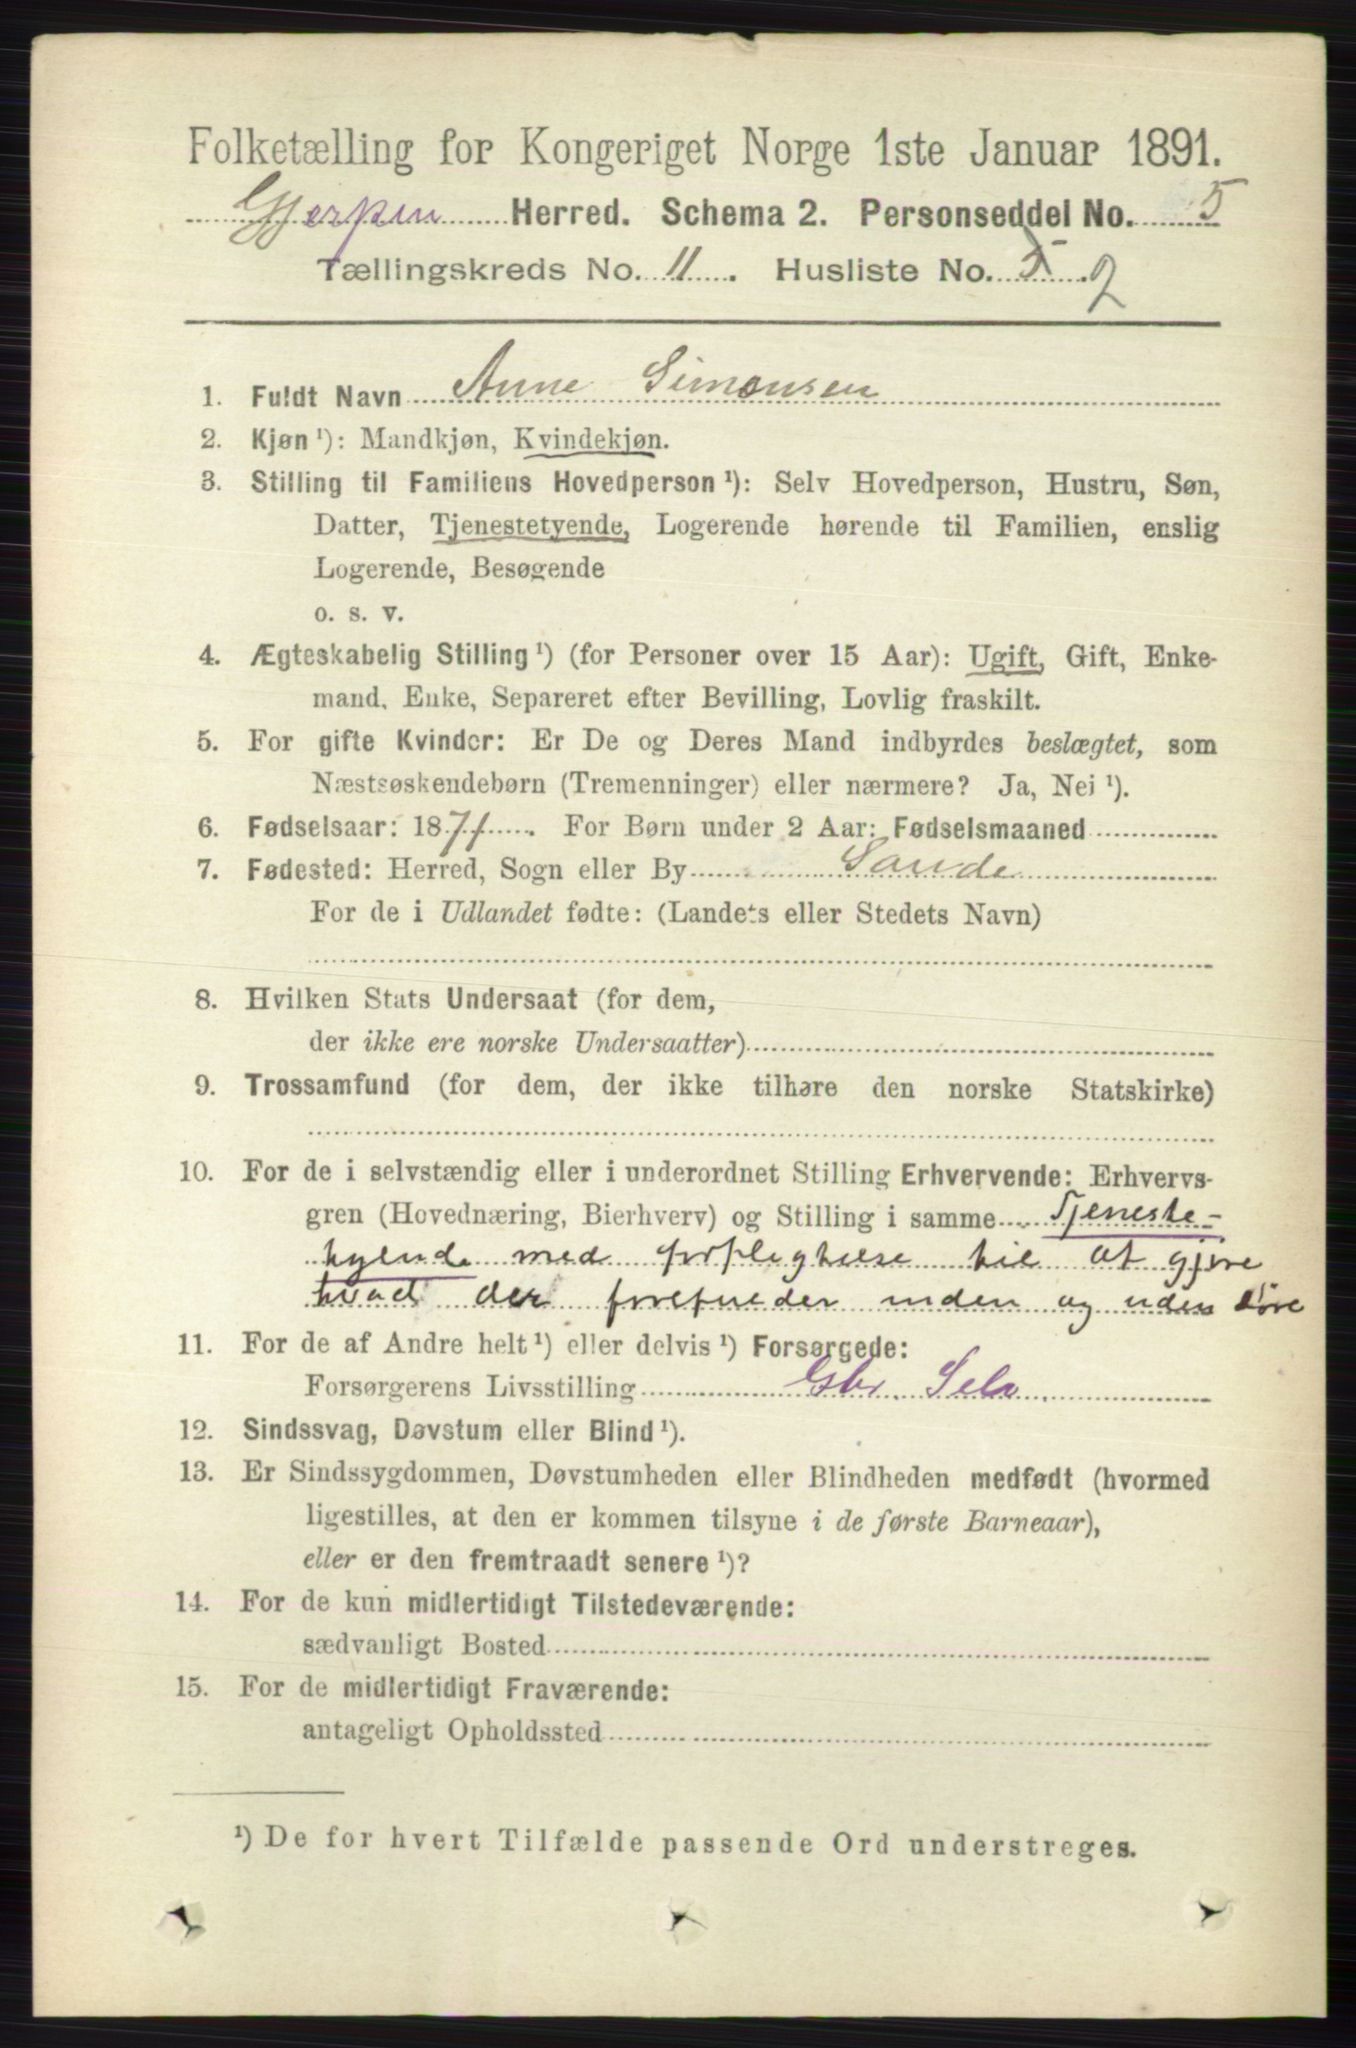 Folketælling for Kongeriget Norge 1ste Januar 1891.
Gjerpen Herred. Schema 2. Personseddel No. 5
Tællingskreds No. 11. Husliste No. 5 2
1. Fuldt Navn Anne Simonsen
2. Kjøn ¹): Mandkjøn, Kvindekjøn.
3. Stilling til Familiens Hovedperson ¹): Selv Hovedperson, Hustru, Søn,
Datter, Tjenestetyende, Logerende hørende til Familien, enslig
Logerende, Besøgende
o. s. v.
4. Ægteskabelig Stilling ¹) (for Personer over 15 Aar): Ugift, Gift, Enke-
mand, Enke, Separeret efter Bevilling, Lovlig fraskilt.
5. For gifte Kvinder: Er De og Deres Mand indbyrdes beslægtet, som
Næstsøskendebørn (Tremenninger) eller nærmere? Ja, Nei ¹).
6. Fødselsaar: 1871. For Børn under 2 Aar: Fødselsmaaned
7. Fødested: Herred, Sogn eller By Sande
For de i Udlandet fødte: (Landets eller Stedets Navn)
8. Hvilken Stats Undersaat (for dem,
der ikke ere norske Undersaatter)
9. Trossamfund (for dem, der ikke tilhøre den norske Statskirke)
10. For de i selvstændig eller i underordnet Stilling Erhvervende: Erhvervs-
gren (Hovednæring, Bierhverv) og Stilling i samme Tjeneste-
tyende med forpligtelse til at gjøre
hvad der forefinder inden og uden døre
11. For de af Andre helt ¹) eller delvis ¹) Forsørgede:
Forsørgerens Livsstilling Gbr. Selv.
12. Sindssvag, Døvstum eller Blind ¹).
13. Er Sindssygdommen, Døvstumheden eller Blindheden medfødt (hvormed
ligestilles, at den er kommen tilsyne i de første Barneaar),
eller er den fremtraadt senere ¹)?
14. For de kun midlertidigt Tilstedeværende:
sædvanligt Bosted
15. For de midlertidigt Fraværende:
antageligt Opholdssted
¹) De for hvert Tilfælde passende Ord understreges.